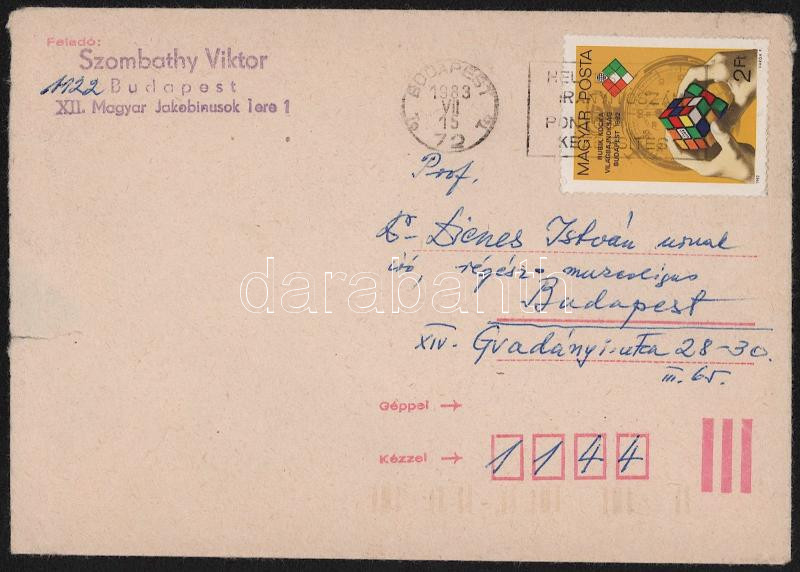 Feladó:
Szombathy Viktor
1122 Budapest
XII. Magyar Jakobinusok tere 1
BUDAPEST
1983
VII
15
72
MAGYAR POSTA
RUBIK KOCKA
VILÁGBAJNOKSÁG
BUDAPEST 1982
2 Ft
Prof.
Dr Dienes István úrnak
író, régész-muzeológus
Budapest
XIV. Gvadányi-utca 28-30.
III. 65.
darabanth
Géppel →
Kézzel → 1144